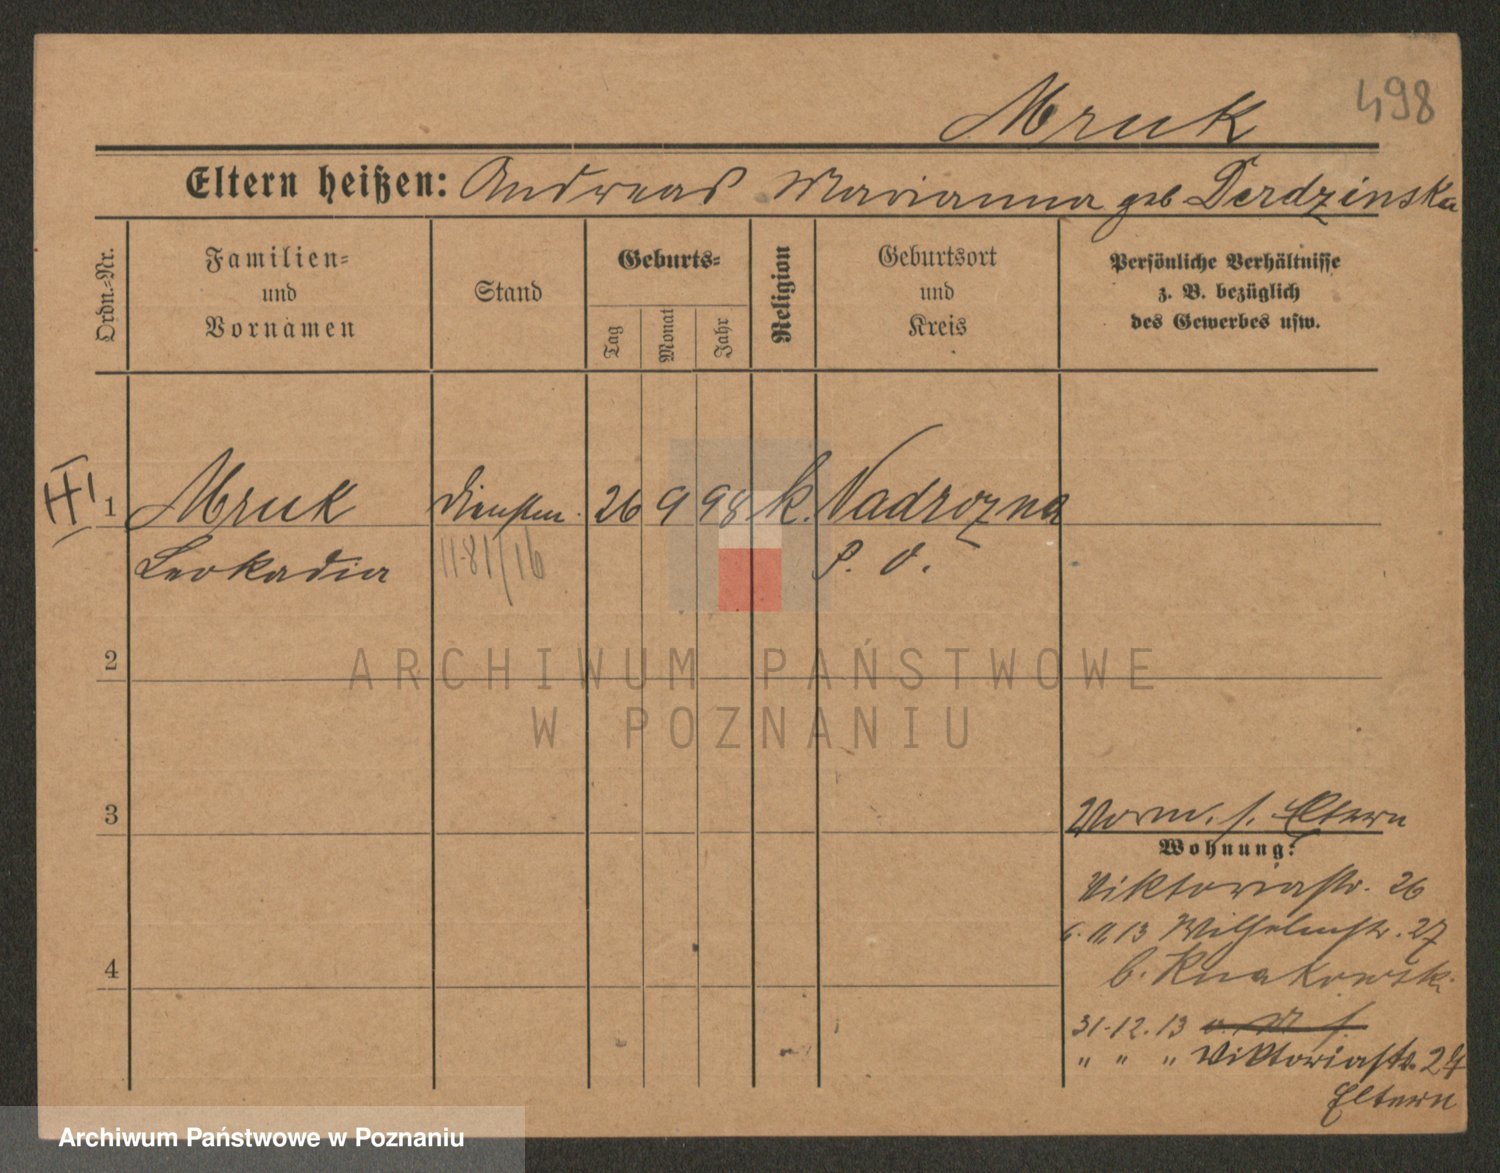 498
Mruk
Eltern heißen: Andreas Marianna geb Derdzinska
Ordn.-Nr.
Familien-
und
Vornamen
Stand
Geburts-
Tag
Monat
Jahr
Religion
Geburtsort
und
Kreis
Persönliche Verhältnisse
z. B. bezüglich
des Gewerbes usw.
1 Mruk Dienstm. 26 9 98 k. Nadrozna
Leokadia 11-81/16 P. O.
2
ARCHIWUM PAŃSTWOWE
W POZNANIU
3
Vorm. s. Eltern
Wohnung:
Viktoriastr. 26
6.11.13 Wilhelmstr. 27
b. Knakowski
4
31.12.13
" " " Viktoriastr. 24
Eltern
Archiwum Państwowe w Poznaniu